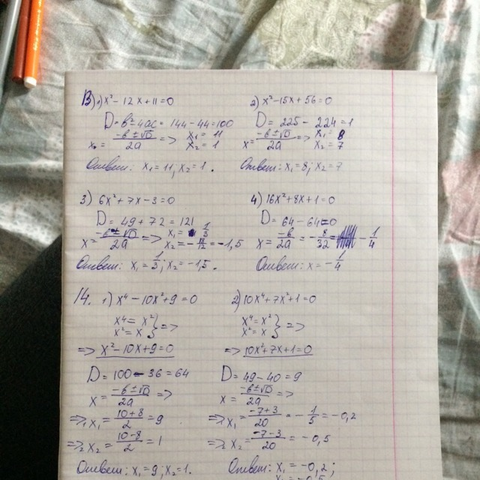 13) 1) x² - 12x + 11 = 0
D = b² - 4ac = 144 - 44 = 100
x = (-b ± √D)/2a => x₁ = 11 x₂ = 1
Ответ: x₁ = 11, x₂ = 1.
2) x² - 15x + 56 = 0
D = 225 - 224 = 1
x = (-b ± √D)/2a => x₁ = 8 x₂ = 7
Ответ: x₁ = 8; x₂ = 7
3) 6x² + 7x - 3 = 0
D = 49 + 72 = 121
x = (-b ± √D)/2a => x₁ = 1/3 x₂ = -18/12 = -1,5
Ответ: x₁ = 1/3; x₂ = -1,5.
4) 16x² + 8x + 1 = 0
D = 64 - 64 = 0
x = -b/2a = -8/32 = -1/4
Ответ: x = -1/4
14. 1) x⁴ - 10x² + 9 = 0
x⁴ = x²
x² = x } =>
=> x² - 10x + 9 = 0
D = 100 - 36 = 64
x = (-b ± √D)/2a =>
=> x₁ = (10+8)/2 = 9
=> x₂ = (10-8)/2 = 1
Ответ: x₁ = 9, x₂ = 1.
2) 10x⁴ + 7x² + 1 = 0
x⁴ = x²
x² = x } =>
=> 10x² + 7x + 1 = 0
D = 49 - 40 = 9
x = (-b ± √D)/2a =>
=> x₁ = (-7+3)/20 = -1/5 = -0,2
=> x₂ = (-7-3)/20 = -0,5
Ответ: x₁ = -0,2;